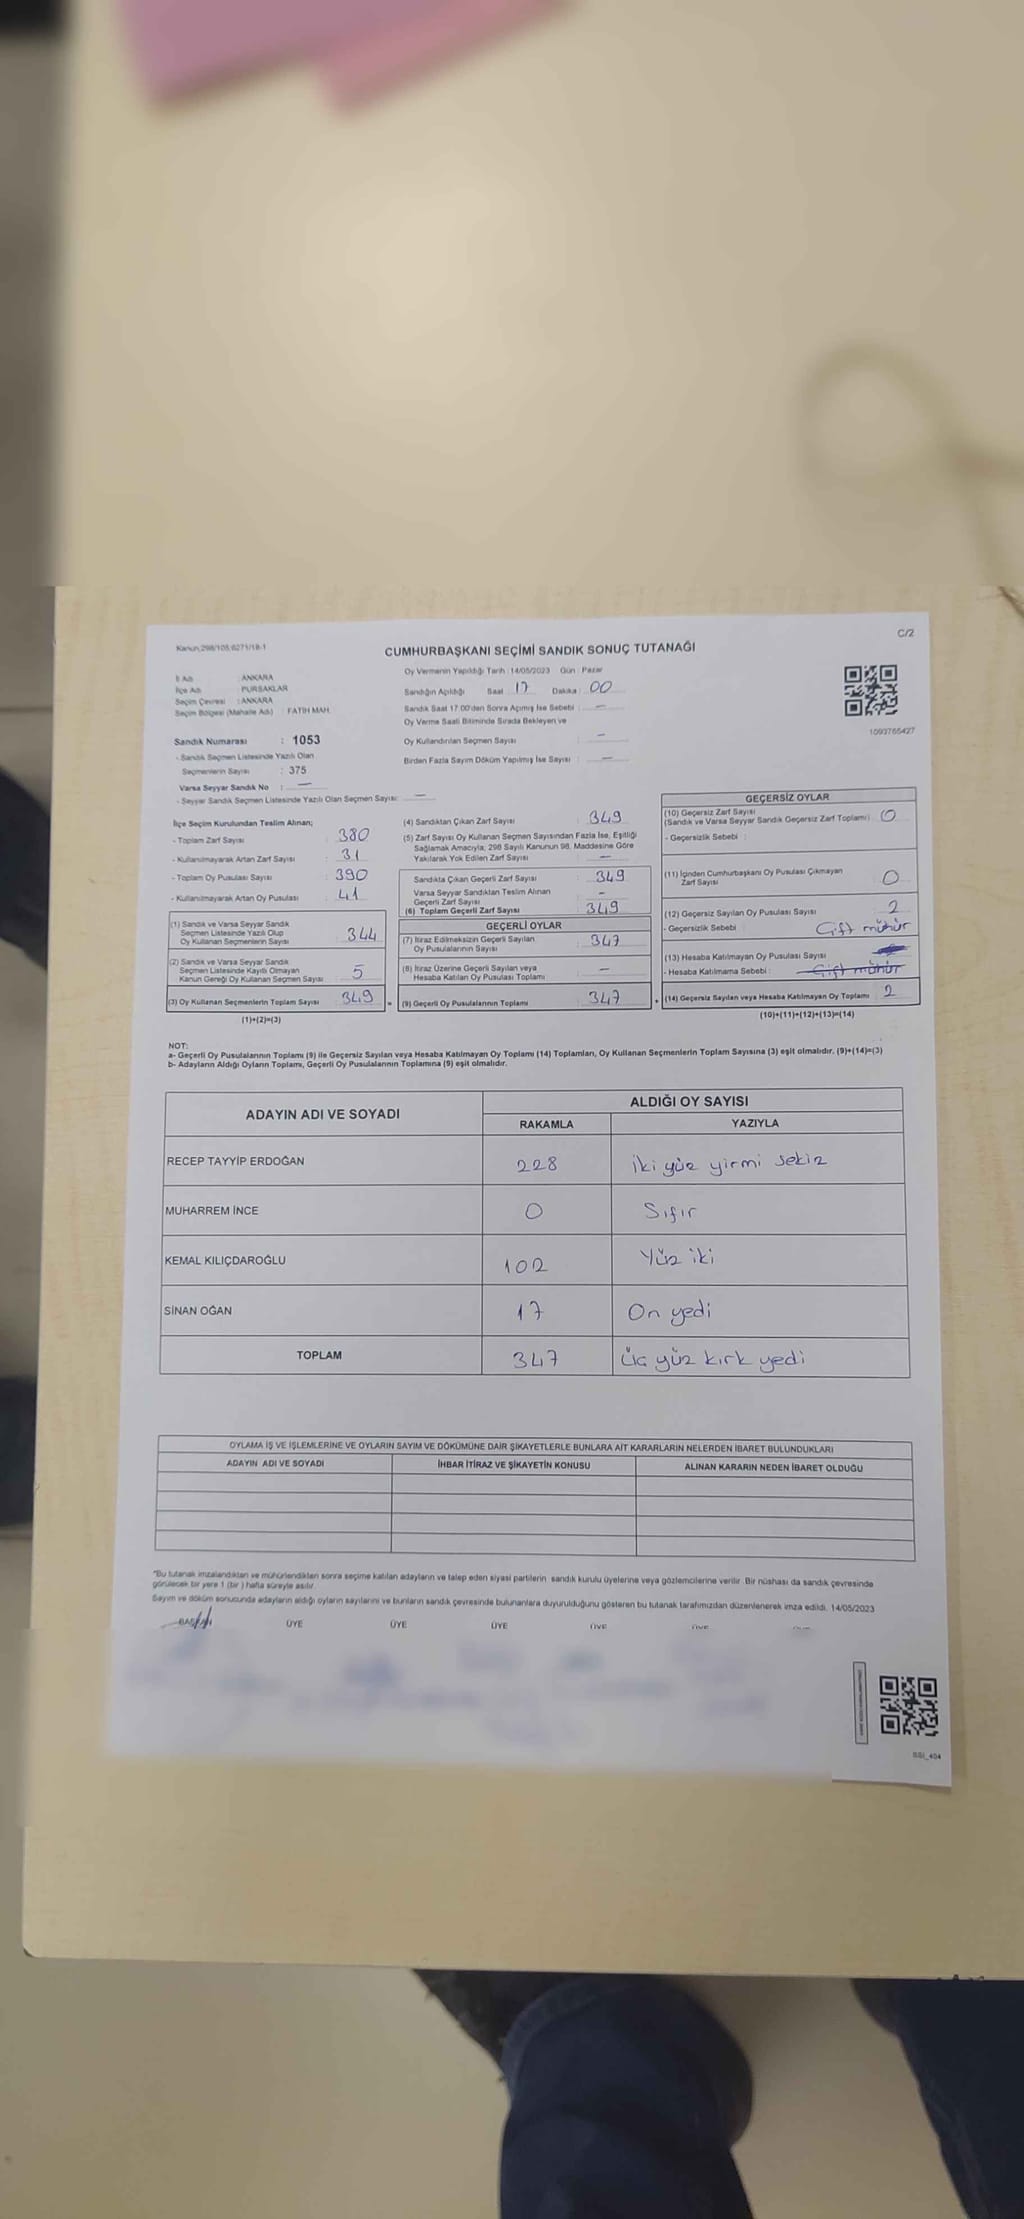 Kanun,298/105,6271/18-1
C/2
CUMHURBAŞKANI SEÇİMİ SANDIK SONUÇ TUTANAĞI
İl Adı : ANKARA
İlçe Adı : PURSAKLAR
Seçim Çevresi : ANKARA
Seçim Bölgesi (Mahalle Adı) : FATİH MAH.
Oy Vermenin Yapıldığı Tarih : 14/05/2023 Gün : Pazar
Sandığın Açıldığı Saat 17 Dakika : 00
Sandık Saat 17:00'den Sonra Açımış İse Sebebi : —
Oy Verme Saati Bitiminde Sırada Bekleyen ve
Oy Kullandırılan Seçmen Sayısı : —
Birden Fazla Sayım Döküm Yapılmış İse Sayısı : —
1093765427
Sandık Numarası : 1053
- Sandık Seçmen Listesinde Yazılı Olan
Seçmenlerin Sayısı : 375
Varsa Seyyar Sandık No : —
- Seyyar Sandık Seçmen Listesinde Yazılı Olan Seçmen Sayısı: —
İlçe Seçim Kurulundan Teslim Alınan;
- Toplam Zarf Sayısı : 380
- Kullanılmayarak Artan Zarf Sayısı : 31
- Toplam Oy Pusulası Sayısı : 390
- Kullanılmayarak Artan Oy Pusulası : 41
(1) Sandık ve Varsa Seyyar Sandık
Seçmen Listesinde Yazılı Olup
Oy Kullanan Seçmenlerin Sayısı 344
(2) Sandık ve Varsa Seyyar Sandık
Seçmen Listesinde Kayıtlı Olmayan
Kanun Gereği Oy Kullanan Seçmen Sayısı 5
(3) Oy Kullanan Seçmenlerin Toplam Sayısı 349 =
(1)+(2)=(3)
(4) Sandıktan Çıkan Zarf Sayısı : 349
(5) Zarf Sayısı Oy Kullanan Seçmen Sayısından Fazla İse, Eşitliği
Sağlamak Amacıyla; 298 Sayılı Kanunun 98. Maddesine Göre
Yakılarak Yok Edilen Zarf Sayısı : —
Sandıkta Çıkan Geçerli Zarf Sayısı : 349
Varsa Seyyar Sandıktan Teslim Alınan
Geçerli Zarf Sayısı : -
(6) Toplam Geçerli Zarf Sayısı : 349
GEÇERLİ OYLAR
(7) İtiraz Edilmeksizin Geçerli Sayılan
Oy Pusulalarının Sayısı : 347
(8) İtiraz Üzerine Geçerli Sayılan veya
Hesaba Katılan Oy Pusulası Toplamı : —
(9) Geçerli Oy Pusulalarının Toplamı : 347 +
GEÇERSİZ OYLAR
(10) Geçersiz Zarf Sayısı
(Sandık ve Varsa Seyyar Sandık Geçersiz Zarf Toplamı) : 0
- Geçersizlik Sebebi :
(11) İçinden Cumhurbaşkanı Oy Pusulası Çıkmayan
Zarf Sayısı : 0
(12) Geçersiz Sayılan Oy Pusulası Sayısı : 2
- Geçersizlik Sebebi : Çift mühür
(13) Hesaba Katılmayan Oy Pusulası Sayısı :
- Hesaba Katılmama Sebebi : Çift mühür
(14) Geçersiz Sayılan veya Hesaba Katılmayan Oy Toplamı 2
(10)+(11)+(12)+(13)=(14)
NOT:
a- Geçerli Oy Pusulalarının Toplamı (9) ile Geçersiz Sayılan veya Hesaba Katılmayan Oy Toplamı (14) Toplamları, Oy Kullanan Seçmenlerin Toplam Sayısına (3) eşit olmalıdır. (9)+(14)=(3)
b- Adayların Aldığı Oyların Toplamı, Geçerli Oy Pusulalarının Toplamına (9) eşit olmalıdır.
ADAYIN ADI VE SOYADI
ALDIĞI OY SAYISI
RAKAMLA YAZIYLA
RECEP TAYYİP ERDOĞAN 228 iki yüz yirmi sekiz
MUHARREM İNCE 0 Sıfır
KEMAL KILIÇDAROĞLU 102 Yüz iki
SİNAN OĞAN 17 On yedi
TOPLAM 347 Üç yüz kırk yedi
OYLAMA İŞ VE İŞLEMLERİNE VE OYLARIN SAYIM VE DÖKÜMÜNE DAİR ŞİKAYETLERLE BUNLARA AİT KARARLARIN NELERDEN İBARET BULUNDUKLARI
ADAYIN ADI VE SOYADI İHBAR İTİRAZ VE ŞİKAYETİN KONUSU ALINAN KARARIN NEDEN İBARET OLDUĞU
*Bu tutanak imzalandıktan ve mühürlendikten sonra seçime katılan adayların ve talep eden siyasi partilerin sandık kurulu üyelerine veya gözlemcilerine verilir. Bir nüshası da sandık çevresinde
görülecek bir yere 1 (bir ) hafta süreyle asılır.
Sayım ve döküm sonucunda adayların aldığı oyların sayılarını ve bunların sandık çevresinde bulunanlara duyurulduğunu gösteren bu tutanak tarafımızdan düzenlenerek imza edildi. 14/05/2023
BAŞKAN ÜYE ÜYE ÜYE ÜYE ÜYE